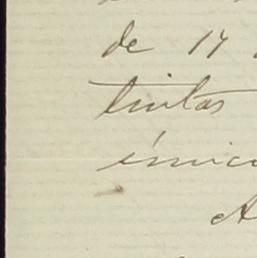 de 14
tintas
únic
A